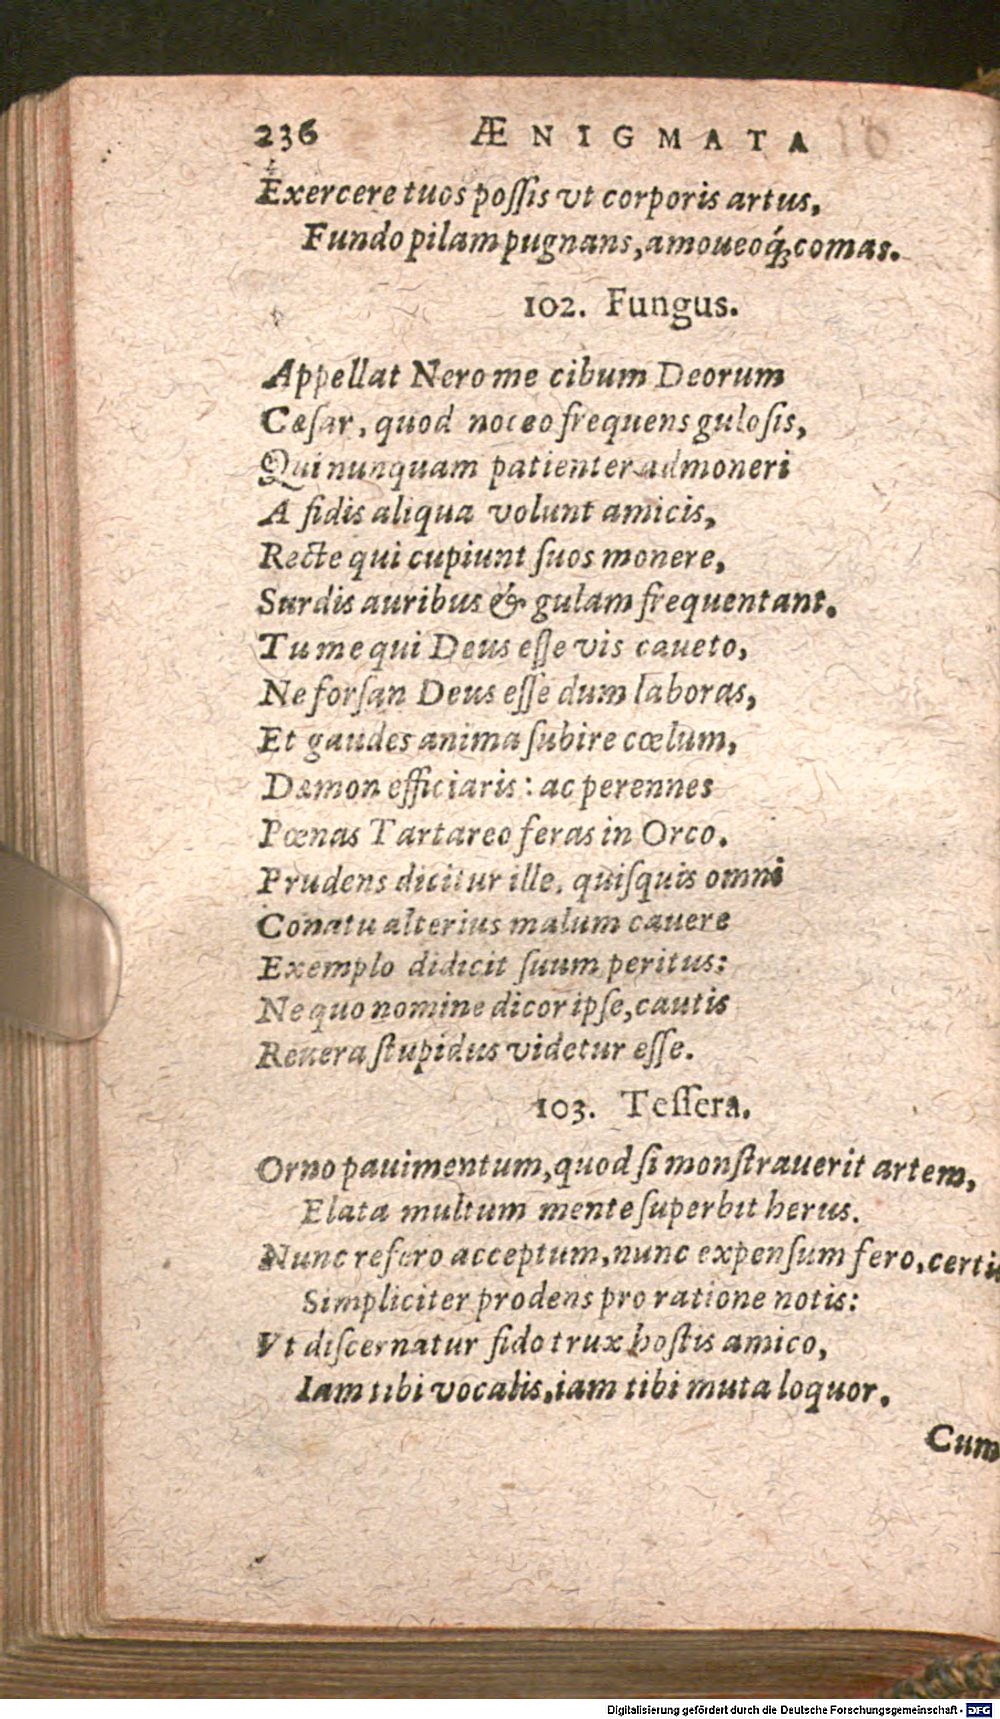 236 ÆNIGMATA
Exercere tuos poſſis vt corporis artus,
Fundo pilam pugnans, amoueoq́; comas.
102. Fungus.
Appellat Nero me cibum Deorum
Cæſar, quod noceo frequens guloſis,
Qui nunquam patienter admoneri
A fidis aliqua volunt amicis,
Recte qui cupiunt ſuos monere,
Surdis auribus & gulam frequentant.
Tu me qui Deus eſſe vis caueto,
Ne forſan Deus eſſe dum laboras,
Et gaudes anima ſubire cœlum,
Dæmon efficiaris: ac perennes
Pœnas Tartareo feras in Orco.
Prudens dicitur ille, quiſquis omni
Conatu alterius malum cauere
Exemplo didicit ſuum peritus:
Ne quo nomine dicor ipſe, cautis
Reuera ſtupidus videtur eſſe.
103. Teſſera.
Orno pauimentum, quod ſi monſtrauerit artem,
Elata multum mente ſuperbit herus.
Nunc refero acceptum, nunc expenſum fero, certi
Simpliciter prodens pro ratione notis:
Vt diſcernatur fido trux hoſtis amico,
Iam tibi vocalis, iam tibi muta loquor.
Cum
Digitalisierung gefördert durch die Deutsche Forschungsgemeinschaft - DFG